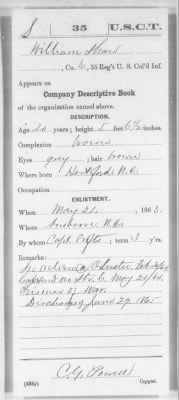 S | 35 | U.S.C.T.
William Shaw
, Co. E, 35 Reg't U. S. Col'd Inf.
Appears on
Company Descriptive Book
of the organization named above.
DESCRIPTION.
Age 20 years; height 5 feet 6½ inches.
Complexion brown
Eyes grey ; hair brown
Where born Hertford N.C.
Occupation
ENLISTMENT.
When May 21 , 1863.
Where N.C.
By whom Capt. Croft ; term 3 y'rs.
Remarks:
Feb 20/64
May 23/64
Prisoner of War
Discharged June 29 1865
C. G. Powell
(383g) Copyist.